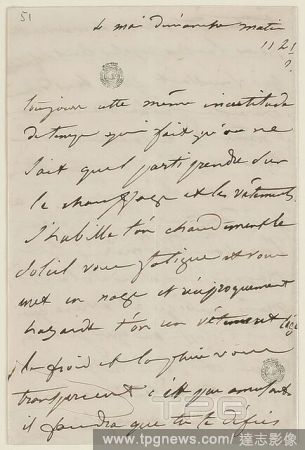 51
4 mai dimanche matin
11 h ½
Toujours cette même incertitude
de temps qui fait qu'on ne
sait quel parti prendre sur
le chauffage et les vêtements
S'habille t'on chaudement le
soleil vous fatigue et vous
met en nage et réciproquement
hazarde t'on un vêtement léger
le froid et la pluie vous
transpercent c'est peu amusant
il faudra que tu te défies
TPG
www.tpgnews.com/達志影像